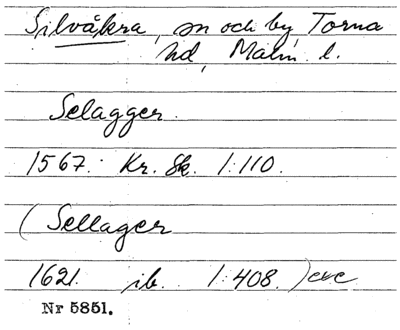 Silvåkra, sn och by, Torna
hd, Malm. l.
Selagger.
1567. Kr. Sk. 1:110.
(Sellager
1621. ib. 1:408.)
Nr 5851.